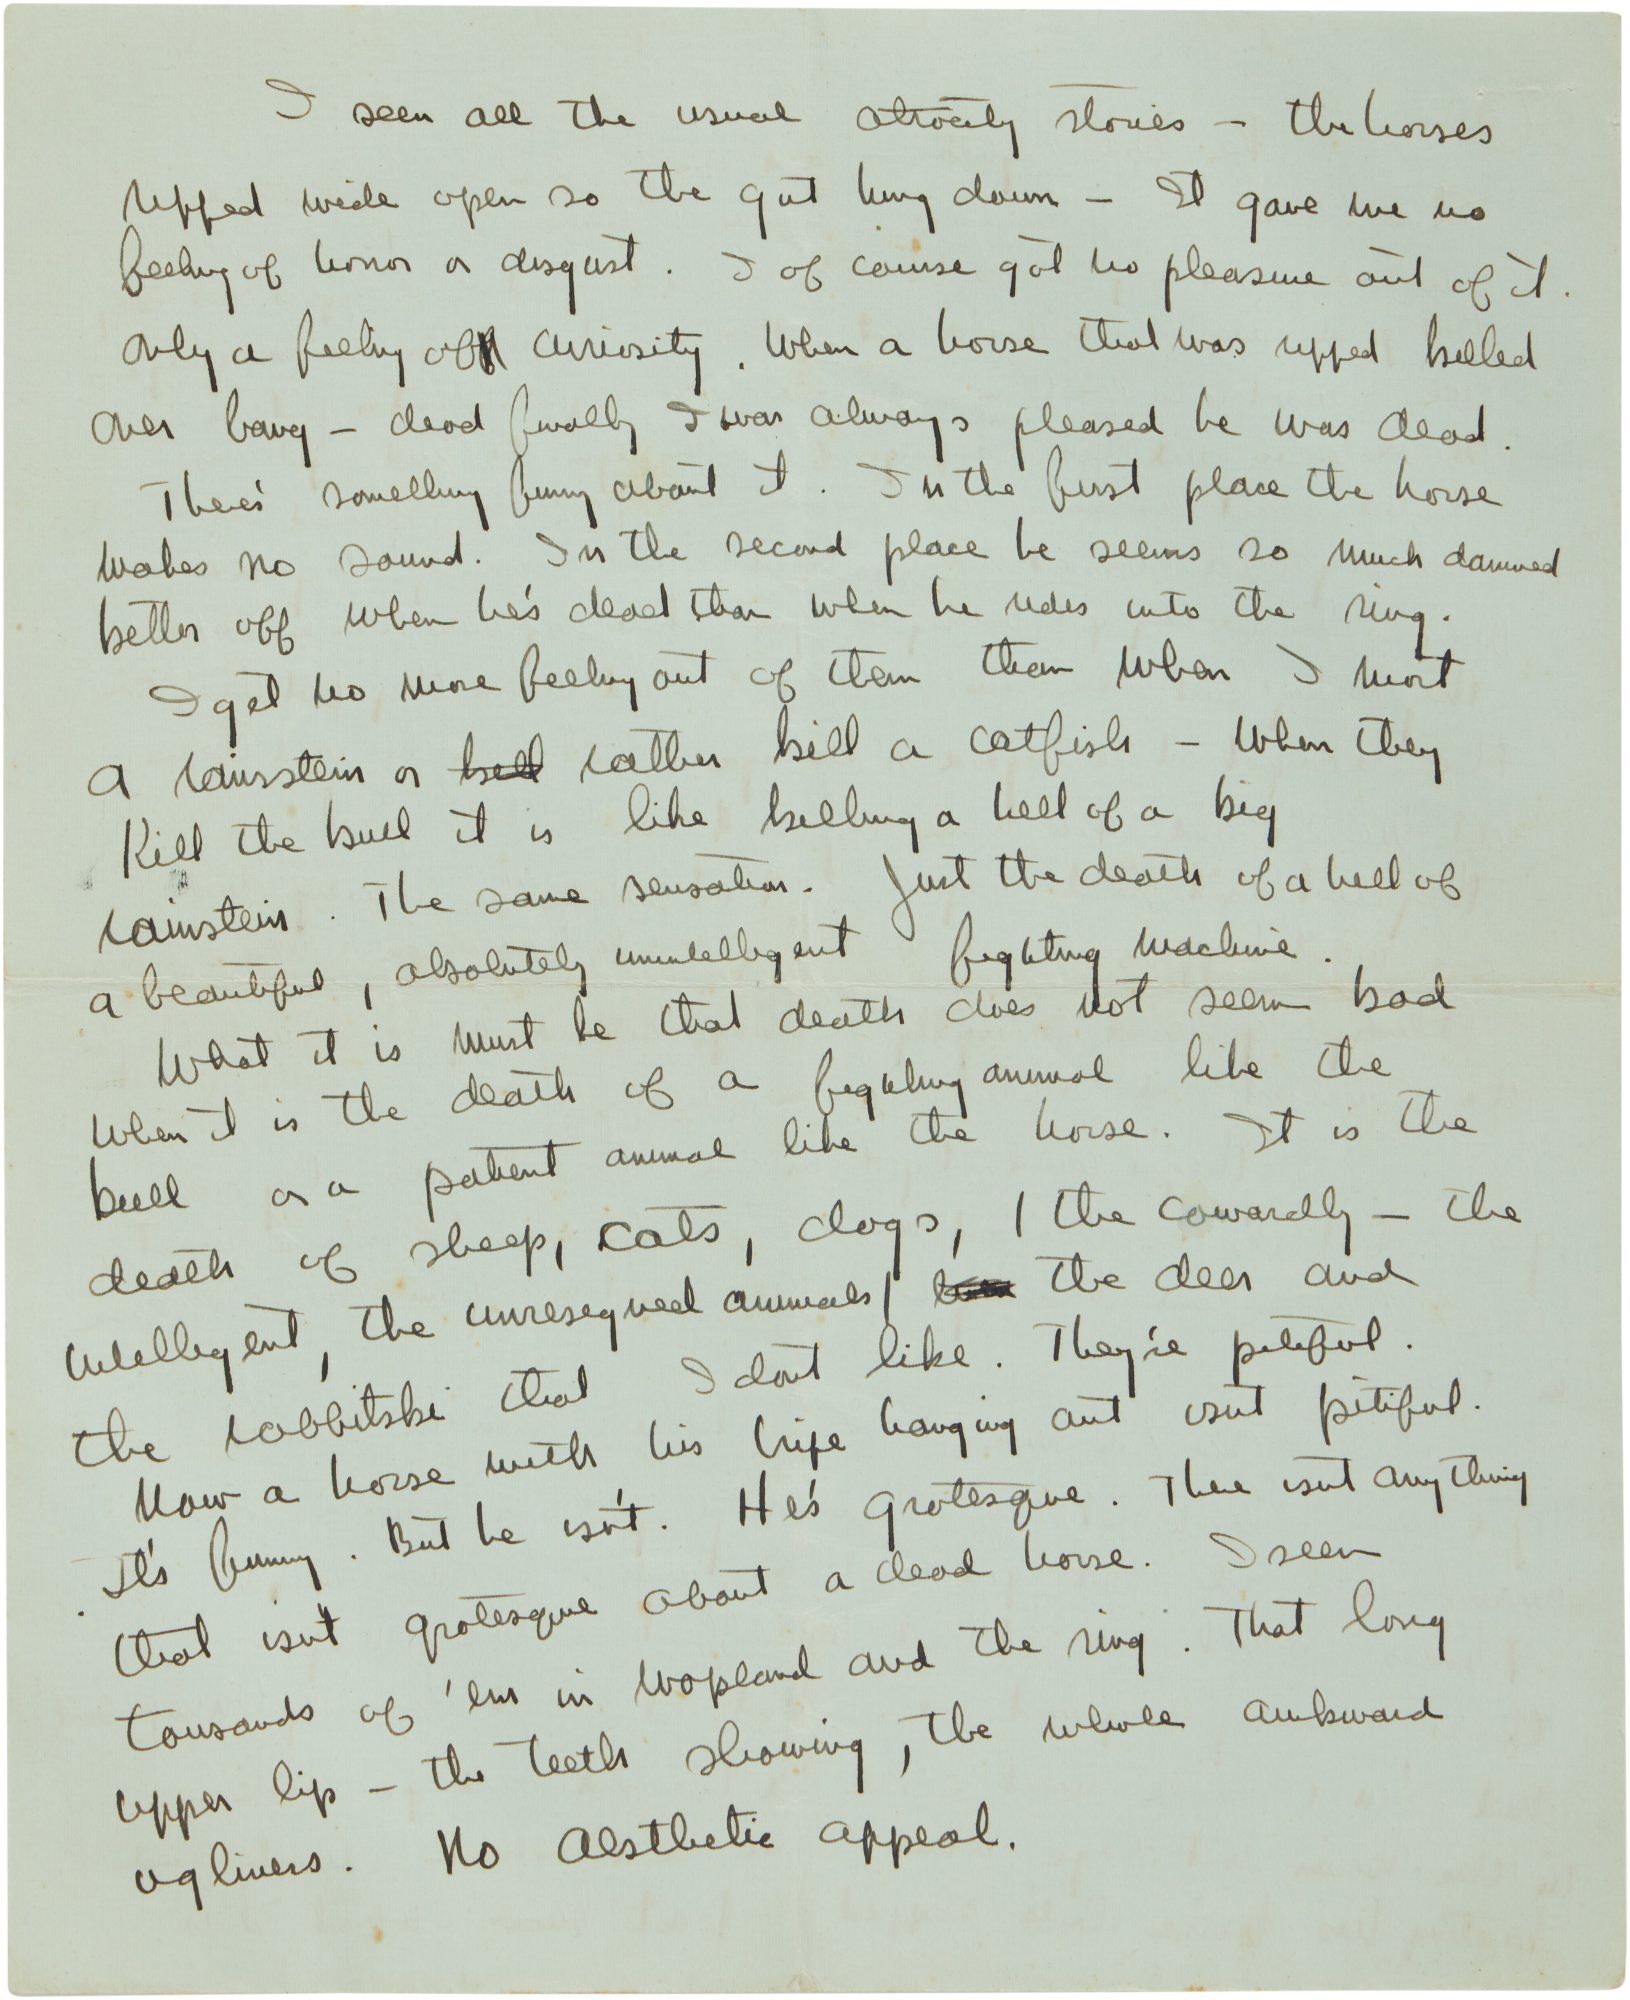 I seen all the usual atrocity stories – the horses
ripped wide open so the gut hung down – It gave me no
feeling of horror or disgust. I of course got no pleasure out of it.
Only a feeling of curiosity. When a horse that was ripped keeled
over bang – dead finally I was always pleased he was dead.
There's something funny about it. In the first place the horse
makes no sound. In the second place he seems so much damned
better off when he's dead than when he rides into the ring.
I get no more feeling out of them than when I
a rainsstein or kill rather kill a catfish – When they
Kill the bull it is like killing a hell of a big
rainstein. The same sensation. Just the death of a hell of
a beautiful, absolutely unintelligent fighting machine.
What it is must be that death does not seem bad
when it is the death of a fighting animal like the
bull or a patient animal like the horse. It is the
death of sheep, cats, dogs, / the cowardly – the
intelligent, the unresigned animals / the deer and
the rabbitski that I dont like. They're pitiful.
Now a horse with his tripe hanging out isnt pitiful.
It's funny. But he isn't. He's grotesque. There isnt anything
that isn't grotesque about a dead horse. I seen
tousands of 'em in Wopland and the ring. That long
upper lip – the teeth showing, the whole awkward
ugliness. No Aesthetic appeal.